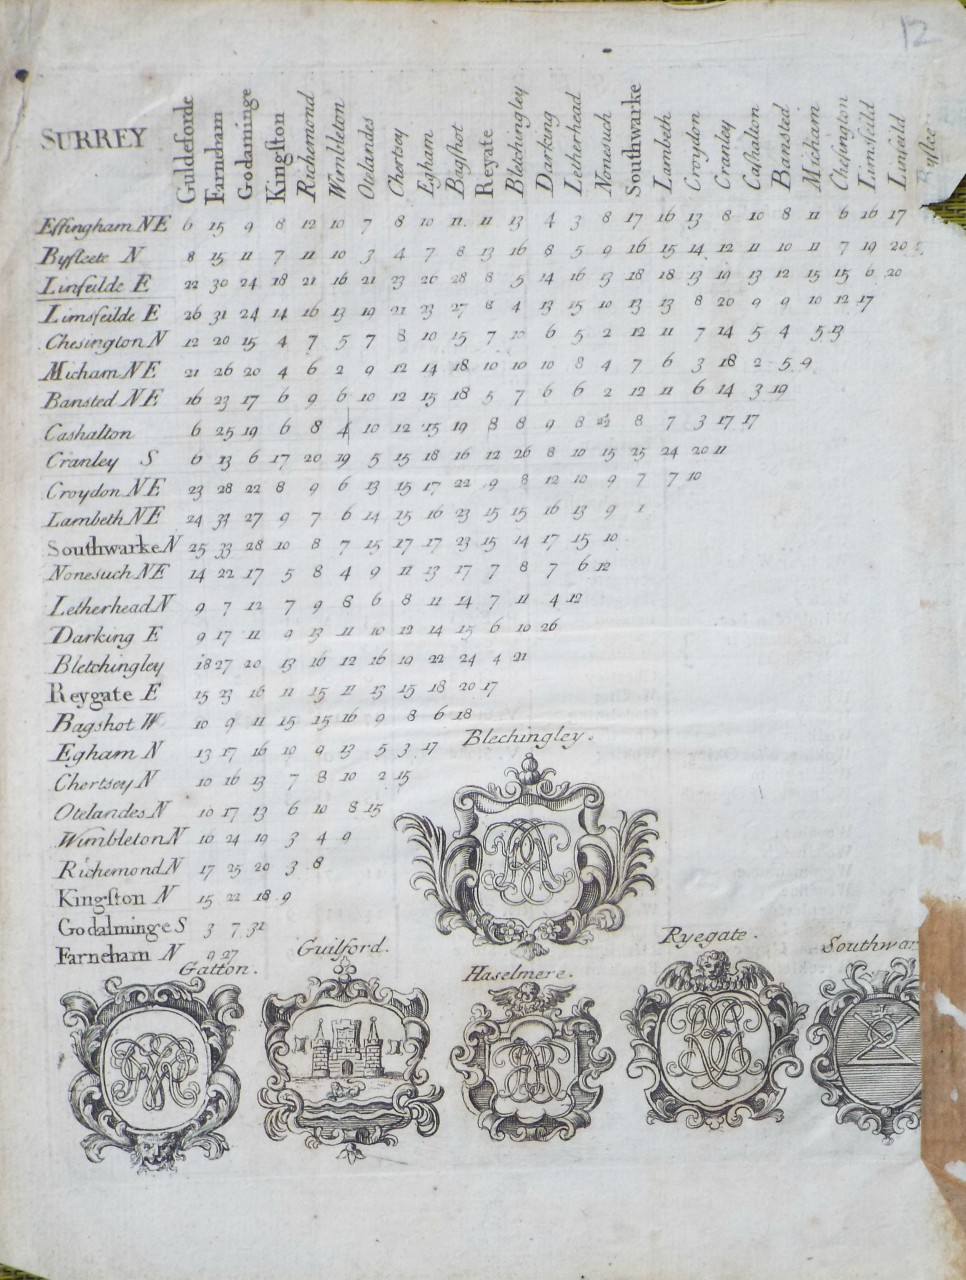 12
SURREY Guldeforde Farneham Godaminge Kingſton Richemond Wimbleton Otelandes Chertsey Egham Bagſhot Reyate Bletchingley Darking Letherhead Nonesuch Southwarke Lambeth Croydon Cranley Caſhalton Bansted Micham Cheſington Limſeild Linſeild
Effingham NE 6 15 9 8 12 10 7 8 10 11 11 13 4 3 8 17 16 13 8 10 8 11 6 16 17
Byfleete N 8 15 11 7 11 10 3 4 7 8 13 16 8 5 9 16 15 14 12 11 10 11 7 19 20
Linfeilde E 22 30 24 18 21 16 21 23 26 28 8 5 14 16 13 18 18 13 19 13 12 15 15 6 20
Limsfeilde E 26 31 24 14 16 13 19 21 23 27 8 4 13 15 10 13 13 8 20 9 9 10 12 17
Chesington N 12 20 15 4 7 5 7 8 10 15 7 10 6 5 2 12 11 7 14 5 4 5 13
Micham NE 21 26 20 4 6 2 9 12 14 18 10 10 10 8 4 7 6 3 18 2 5 9
Bansted NE 16 23 17 6 9 6 10 12 15 18 5 7 6 6 2 12 11 6 14 3 19
Cashalton 6 25 19 6 8 4 10 12 15 19 8 8 9 8 2½ 8 7 3 17 17
Cranley S 6 13 6 17 20 19 5 15 18 16 12 26 8 10 15 25 24 20 11
Croydon NE 23 28 22 8 9 6 13 15 17 22 9 8 12 10 9 7 7 10
Lambeth NE 24 33 27 9 7 6 14 15 16 23 15 15 16 13 9 1
Southwarke N 25 33 28 10 8 7 15 17 17 23 15 14 17 15 10
Nonesuch NE 14 22 17 5 8 4 9 11 13 17 7 8 7 6 12
Letherhead N 9 7 12 7 9 8 6 8 11 14 7 11 4 12
Darking E 9 17 11 9 13 11 10 12 14 15 6 10 26
Bletchingley 18 27 20 13 16 12 16 19 22 24 4 21
Reygate E 15 23 16 11 15 11 13 15 18 20 17
Bagshot W 10 9 11 15 15 16 9 8 6 18
Egham N 13 17 16 10 9 13 5 3 17
Chertsey N 10 16 13 7 8 10 2 15
Otelandes N 10 17 13 6 10 8 15
Wimbleton N 16 24 19 3 4 9
Richemond N 17 25 20 3 8
Kingſton N 15 22 18 9
Godalminge S 3 7 31
Farneham N 9 27
Blechingley.
Gatton.
Guilford.
Haselmere.
Ryegate.
Southwar